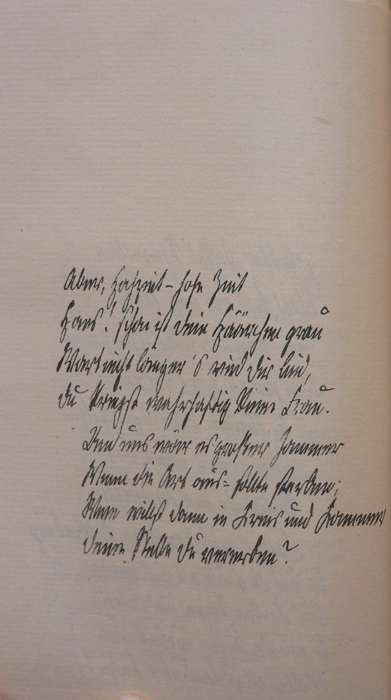 Aber, Hochzeit – hohe Zeit
Hans! schon ist dein Häärchen grau
Wart nicht länger 's wird dir leid,
du kriegst wahrhaftig keine Frau.
Um uns wär es großer Jammer
Wenn die Art aus- sollte sterben;
Wem willst dann in Kreis und Kammer
deine Stelle du vererben?